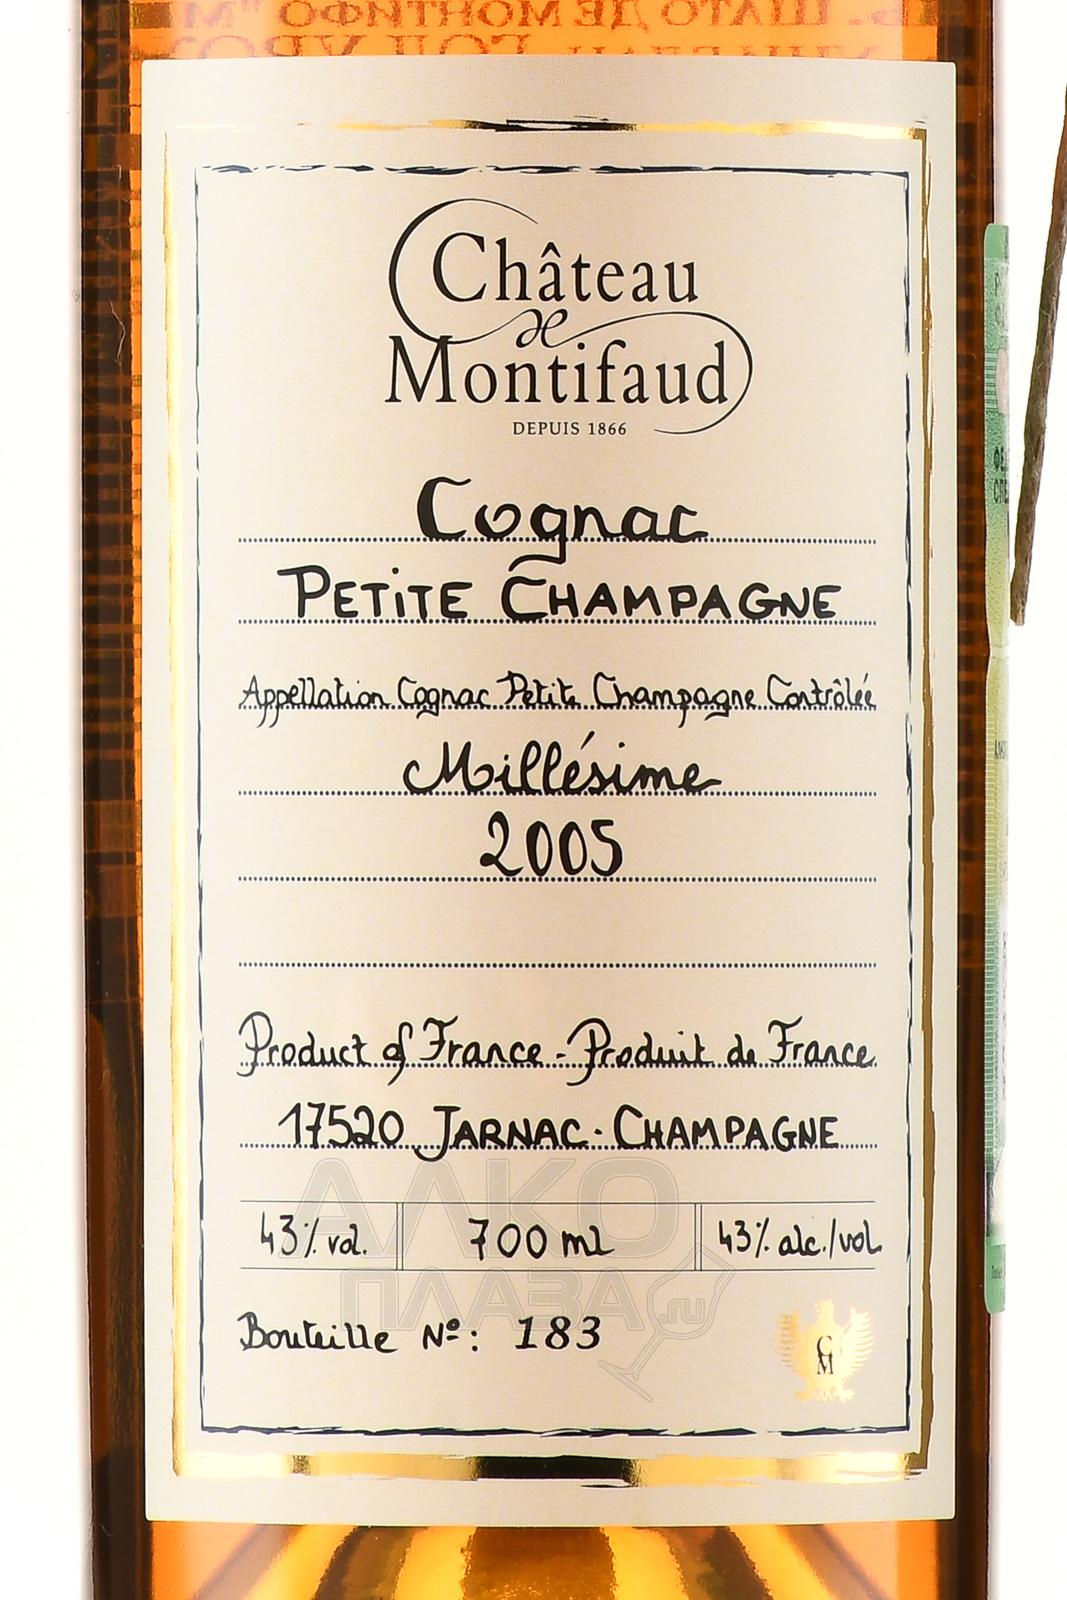 Château
de
Montifaud
DEPUIS 1866
Cognac
PETITE CHAMPAGNE
Appellation Cognac Petite Champagne Contrôlée
Millésime
2005
Product of France - Produit de France
17520 JARNAC - CHAMPAGNE
43% vol. 700 ml 43% alc./vol.
Bouteille Nº: 183
C
M
АЛКО
ПЛАЗА
.ru